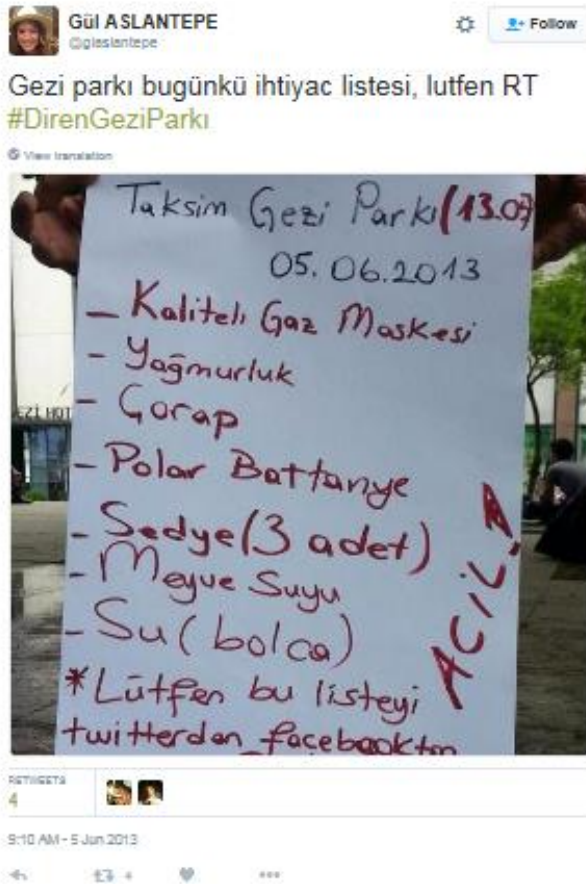 Gül ASLANTEPE
@glaslantepe
Follow
Gezi parkı bugünkü ihtiyac listesi, lutfen RT
#DirenGeziParkı
View translation
Taksim Gezi Parkı (13.07
05.06.2013
- Kaliteli Gaz Maskesi
- Yağmurluk
- Çorap
- Polar Battanye
- Sedye (3 adet)
- Meyve Suyu
- Su (bolca)
ACİL!
* Lütfen bu listeyi
twitterdan facebooktan
RETWEETS
4
9:10 AM - 5 Jun 2013
4